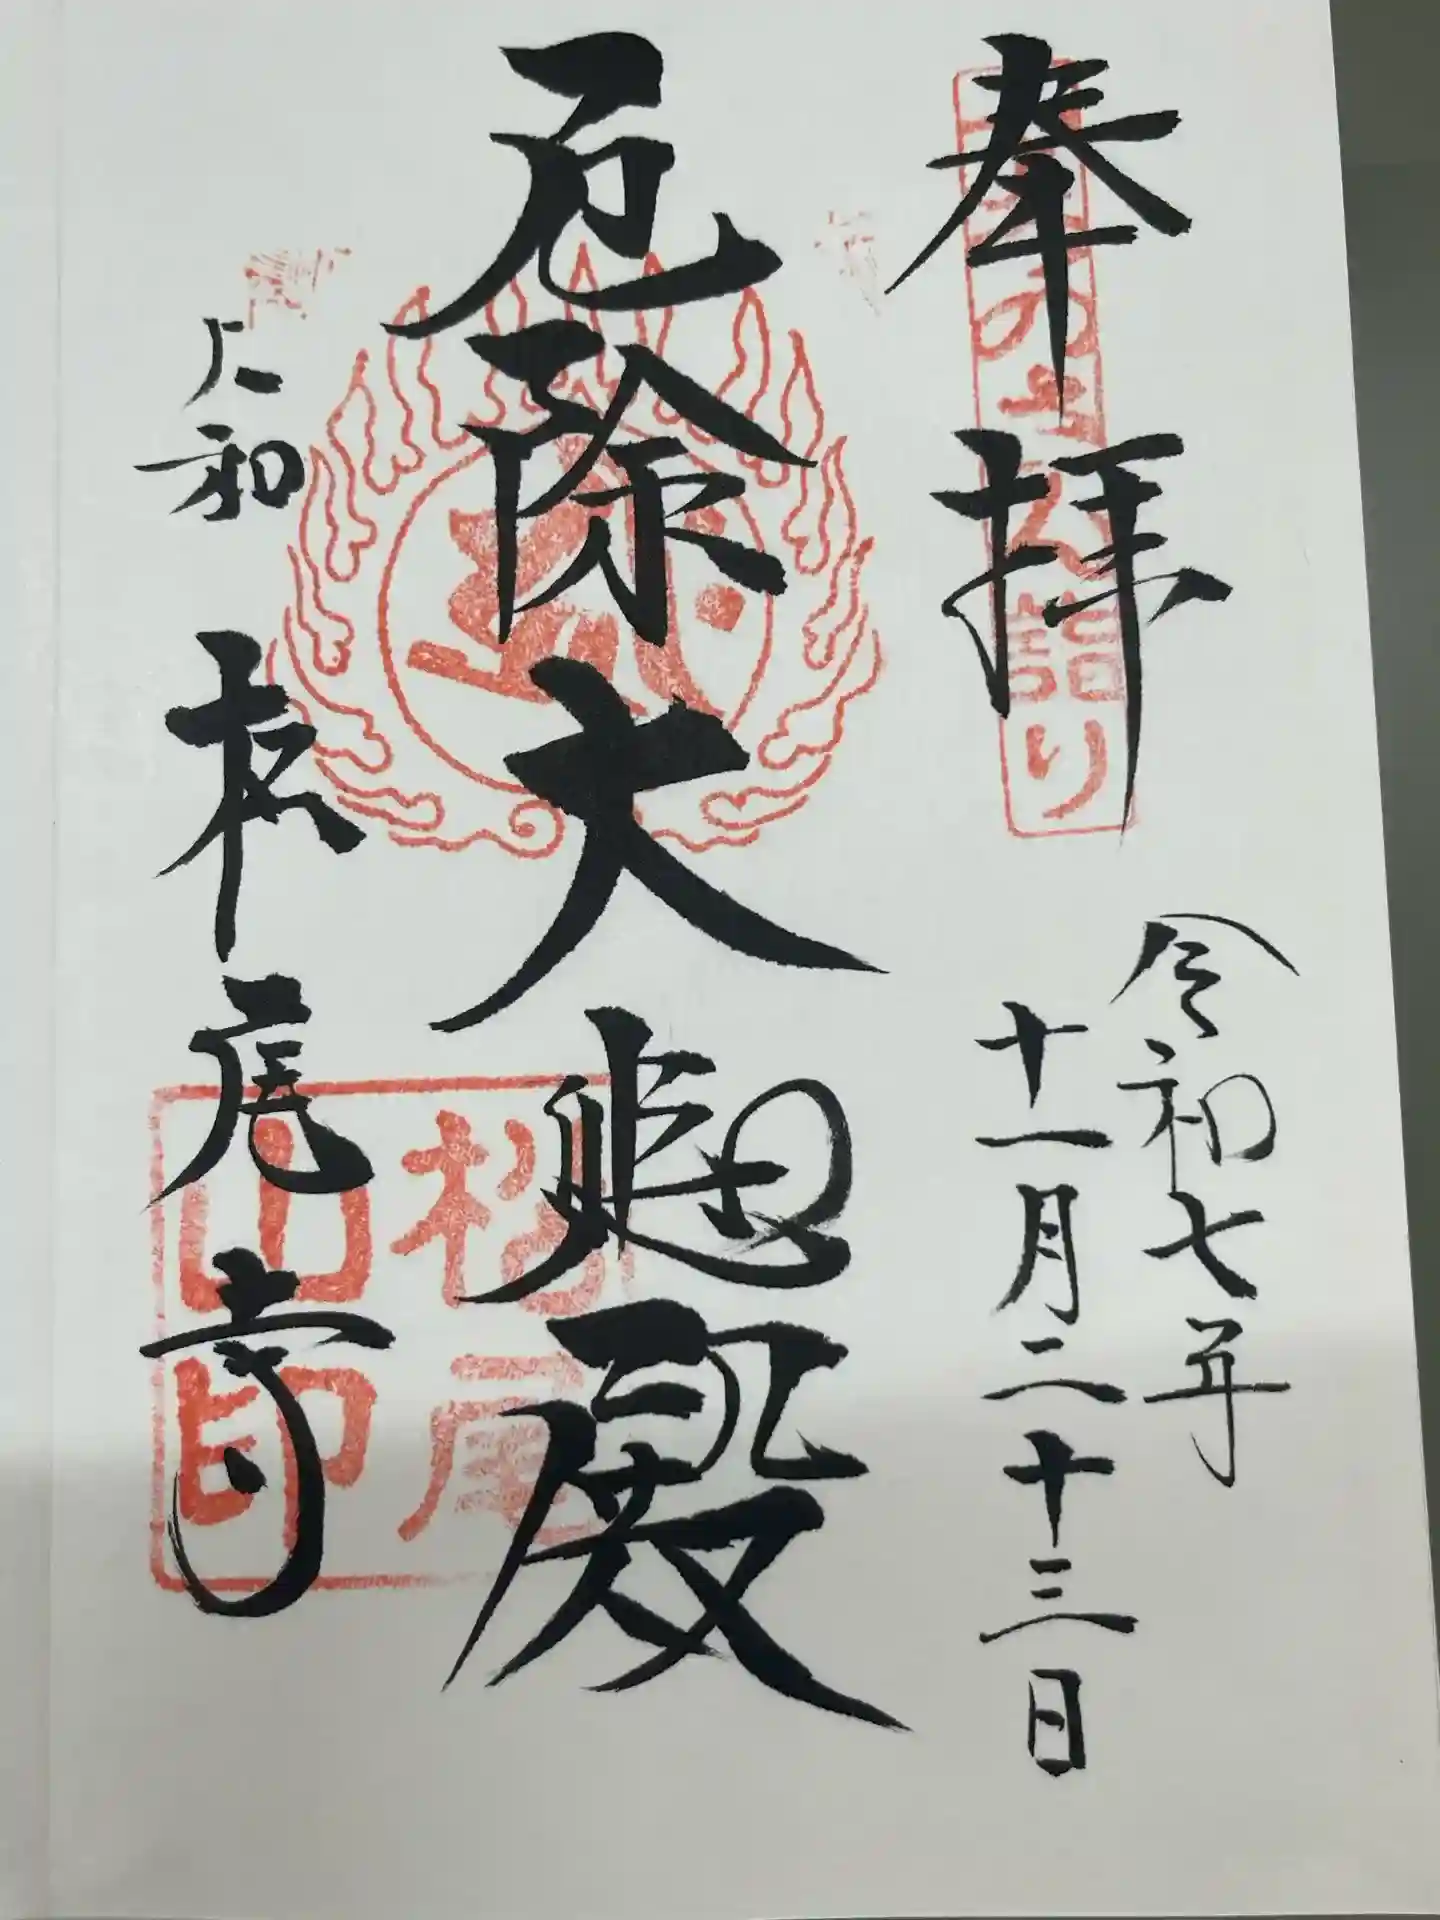 奉拝
令和七年
十一月二十三日
厄除大悲殿
大和 松尾寺
詣り
松尾
山印